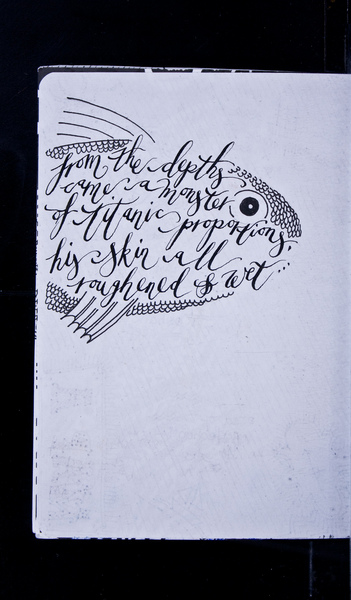 from the depths
came a monster
of titanic proportions,
his skin all
roughened & wet...